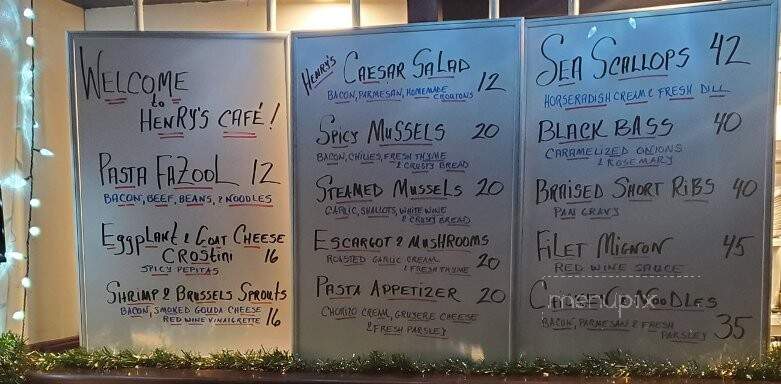 WELCOME
to
HENRY'S CAFÉ!
PASTA FAZOOL 12
BACON, BEEF, BEANS, & NOODLES
EGGPLANT & GOAT CHEESE
CROSTINI 16
SPICY PEPITAS
SHRIMP & BRUSSELS SPROUTS
BACON, SMOKED GOUDA CHEESE
RED WINE VINAIGRETTE 16
HENRY'S CAESAR SALAD 12
BACON, PARMESAN, HOMEMADE
CROUTONS
SPICY MUSSELS 20
BACON, CHILIES, FRESH THYME
& CRUSTY BREAD
STEAMED MUSSELS 20
GARLIC, SHALLOTS, WHITE WINE
& CRUSTY BREAD
ESCARGOT & MUSHROOMS
ROASTED GARLIC CREAM
& FRESH THYME 20
PASTA APPETIZER 20
CHORIZO CREAM, GRUYERE CHEESE
& FRESH PARSLEY
SEA SCALLOPS 42
HORSERADISH CREAM & FRESH DILL
BLACK BASS 40
CARAMELIZED ONIONS
& ROSEMARY
BRAISED SHORT RIBS 40
PAN GRAVY
FILET MIGNON 45
RED WINE SAUCE
CHICKEN & NOODLES
BACON, PARMESAN & FRESH
PARSLEY 35
menupix